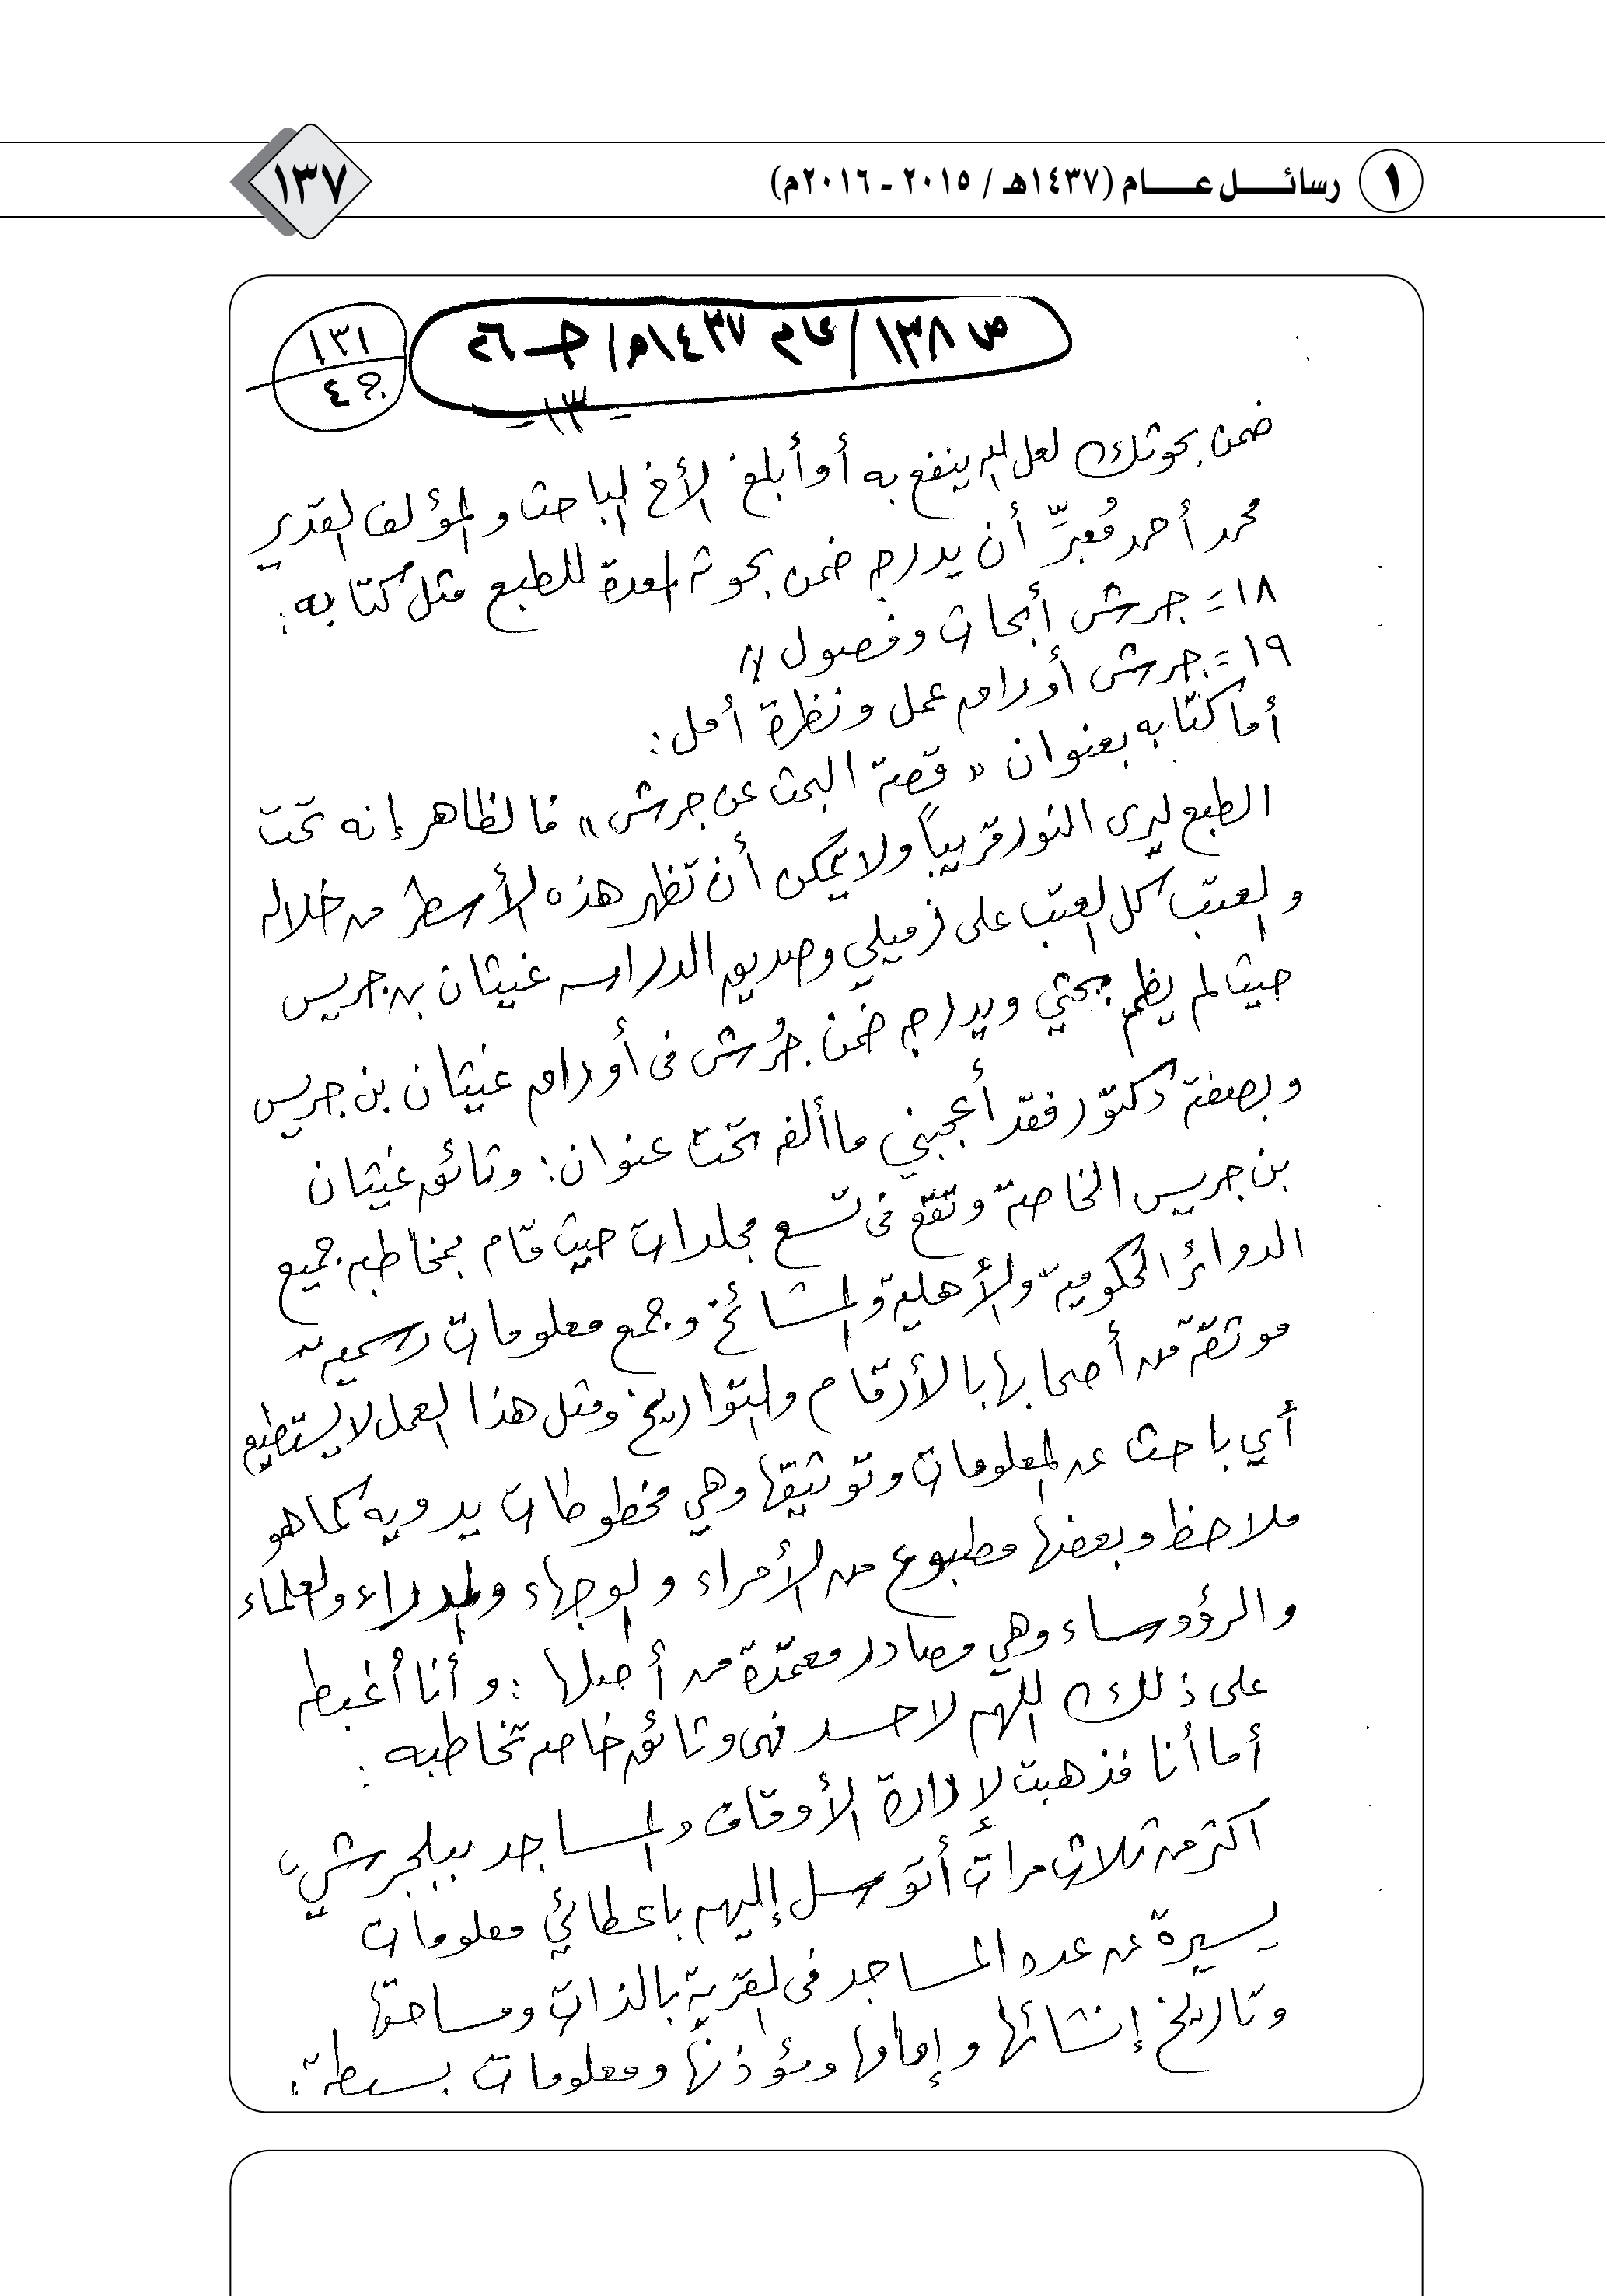 ١ رسائل عام (١٤٣٧هـ / ٢٠١٥ - ٢٠١٦م)
١٣٧
ص ١٣٨ / عام ١٤٣٧هـ / جـ ٢٦
١٣١
ج ٤
- ١٣ -
ضمن بحوثك لعل الله ينفع به أو أبلغ الأخ الباحث والمؤلف القدير
محمد أحمد مُعبِّر أن يدرج ضمن بحوثه المعدة للطبع مثل كتابه :
١٨ = جرش أبحاث وفصول //
١٩ = جرش أوراق عمل ونظرة أمل :
أما كتابه بعنوان « قصة البحث عن جرش » فالظاهر إنه تحت
الطبع ليرى النور قريباً ولا يمكن أن تظهر هذه الأسطر من خلاله
والعتب كل العتب على زميلي وصديق الدراسه غيثان بن جريس
حيث لم يظم بحثي ويدرج ضمن جُرش في أوراق غيثان بن جريس
وبصفة دكتور فقد أعجبني ما ألفه تحت عنوان : وثائق غيثان
بن جريس الخاصة وتقع في تسع مجلدات حيث قام بمخاطبه جميع
الدوائر الحكومية والأهلية والمشائخ وجمع معلومات رسميه
موثقة من أصحابها بالأرقام والتواريخ ومثل هذا العمل لا يستطيع
أي باحث عن المعلومات وتوثيقها وهي مخطوطات يدويه كما هو
ملاحظ وبعضها مطبوع من الأمراء والوجهاء والمدراء والعلماء
والرؤوساء وهي مصادر معتمدة من أصلها : و أنا أغبطه
على ذلك اللهم لاحسد فهي وثائق خاصه تخاطبه :
أما أنا فذهبت لإدارة الأوقاف والمساجد ببلجرشي
اكثر من ثلاث مرات أتوسل إليهم باعطائي معلومات
يسيرة عن عدد المساجد في القرية بالذات ومساحتها
وتاريخ إنشائها وإمامها ومؤذنها ومعلومات بسيطة :